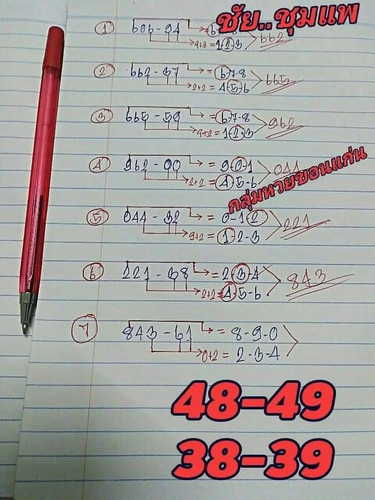 ชัย..ชุมแพ
① 606-94 → = 6-7-8 > 662
9+2 = 1-2-3
② 662-37 → = 6-7-8 > 665
2+2 = 4-5-6
③ 665-59 → = 6-7-8 > 962
9+2 = 1-2-3
④ 962-00 → = 9-0-1 > 044
2+2 = 4-5-6
กลุ่มหวยขอนแก่น
⑤ 044-32 → = 0-1-2 > 221
9+2 = 1-2-3
⑥ 221-38 → = 2-3-4 > 843
2+2 = 4-5-6
⑦ 843-61 → = 8-9-0 >
0+2 = 2-3-4
48-49
38-39